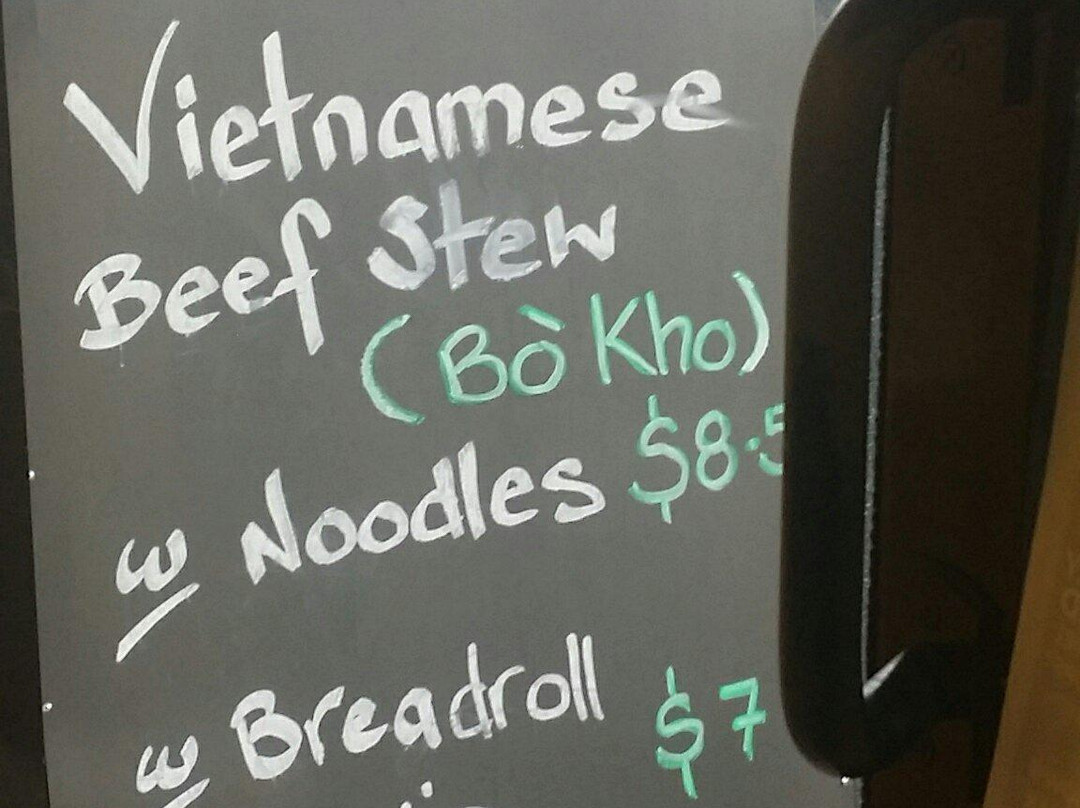 Vietnamese
Beef Stew
(Bò Kho)
w Noodles $8.5
w Breadroll $7